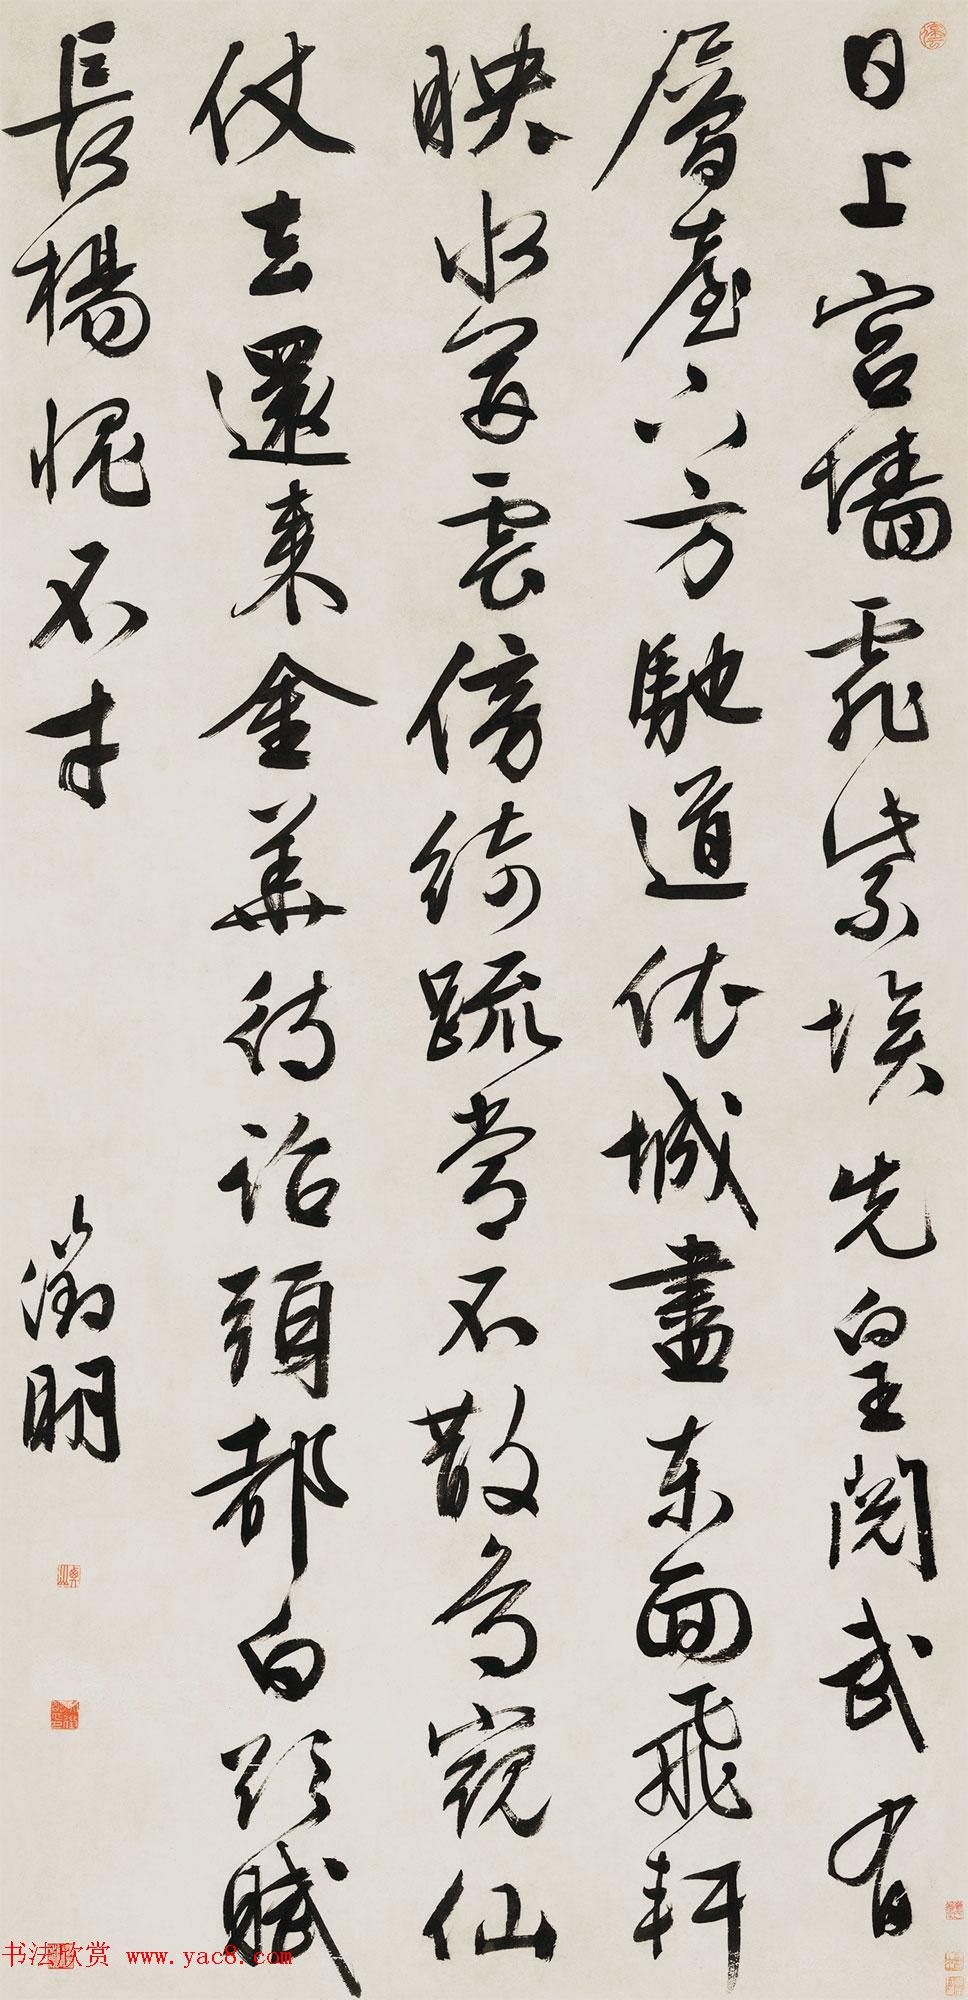 日上宮墻霏紫埃先皇閱武有
層臺下方馳道依城盡東面飛軒
映水開雲傍綺疏常不散鳥窺仙
仗去還來金華待詔頭都白欲賦
長楊愧不才
徵明
书法欣赏 www.yac8.com